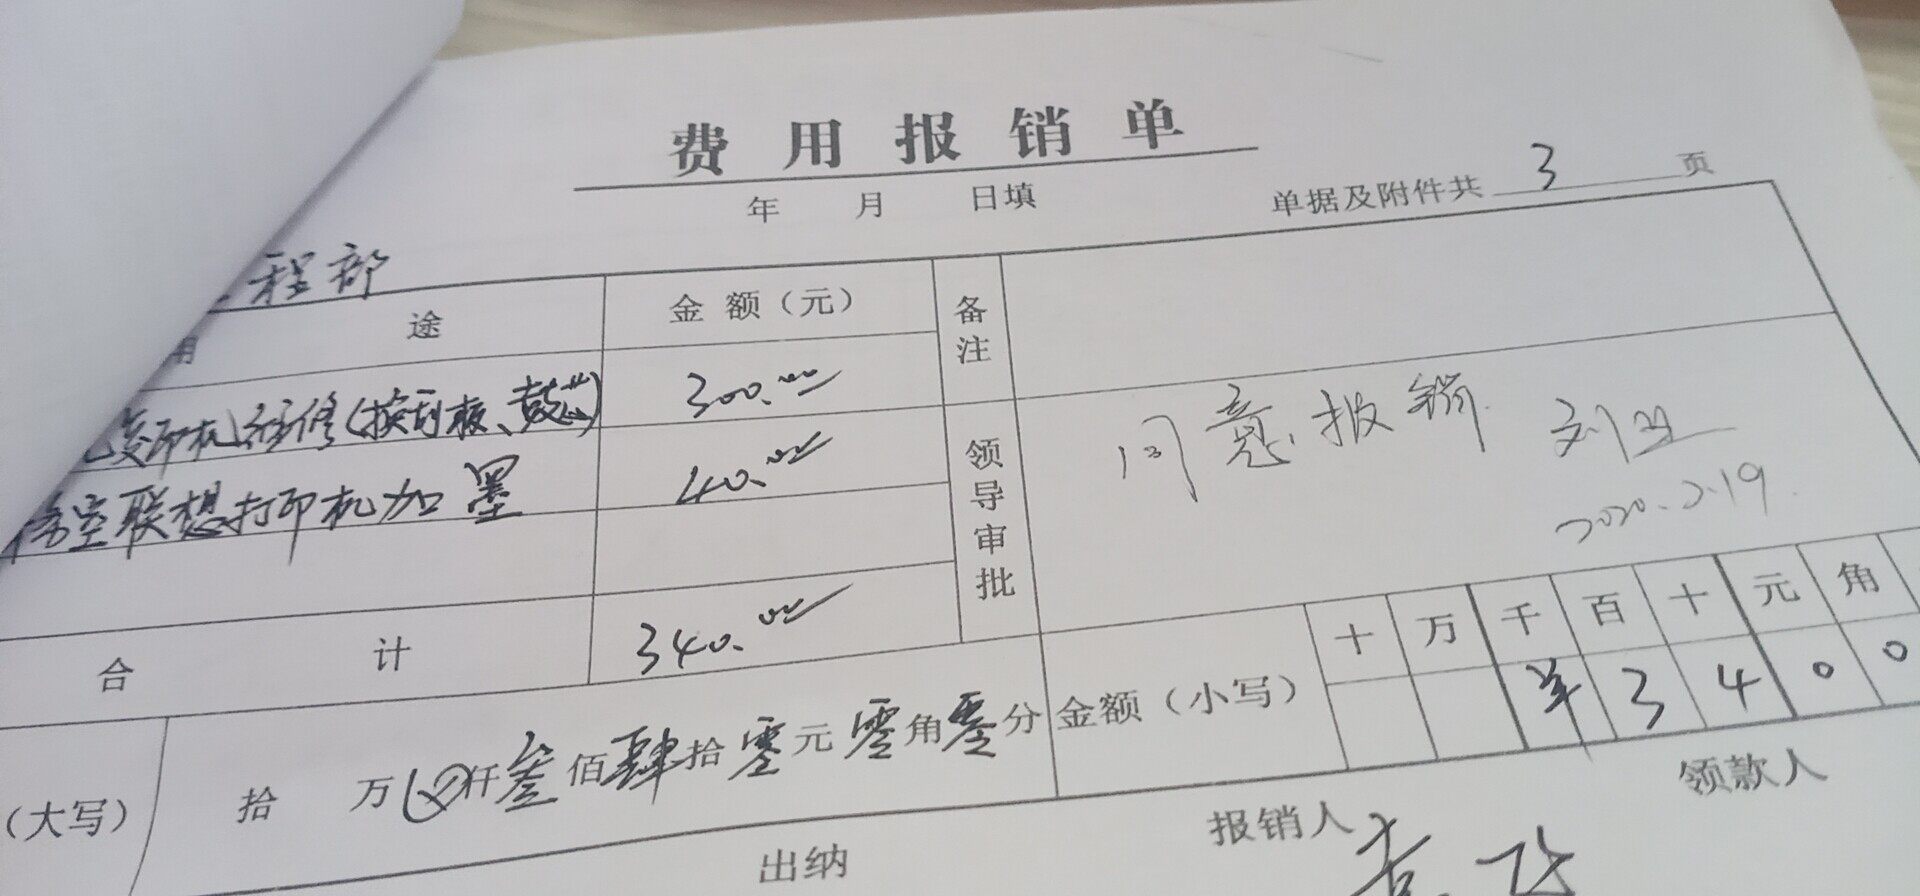 费用报销单
年 月 日填 单据及附件共 3 页
工程部
用途 金额（元） 备注
复印机维修(换刮板、鼓芯) 300.00
联想打印机加墨 40.00
领导审批 同意报销
2020.2.19
合计 340.00
十 万 千 百 十 元 角
（大写） 拾 万 ⊗ 仟 叁 佰 肆 拾 零 元 零 角 零 分 金额（小写） ¥ 3 4 0 0
出纳 报销人 领款人